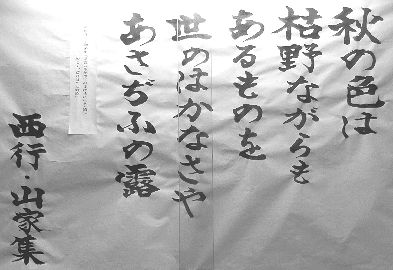 秋の色は
枯野ながらも
あるものを
世のはかなさや
あさぢふの露
西行・山家集